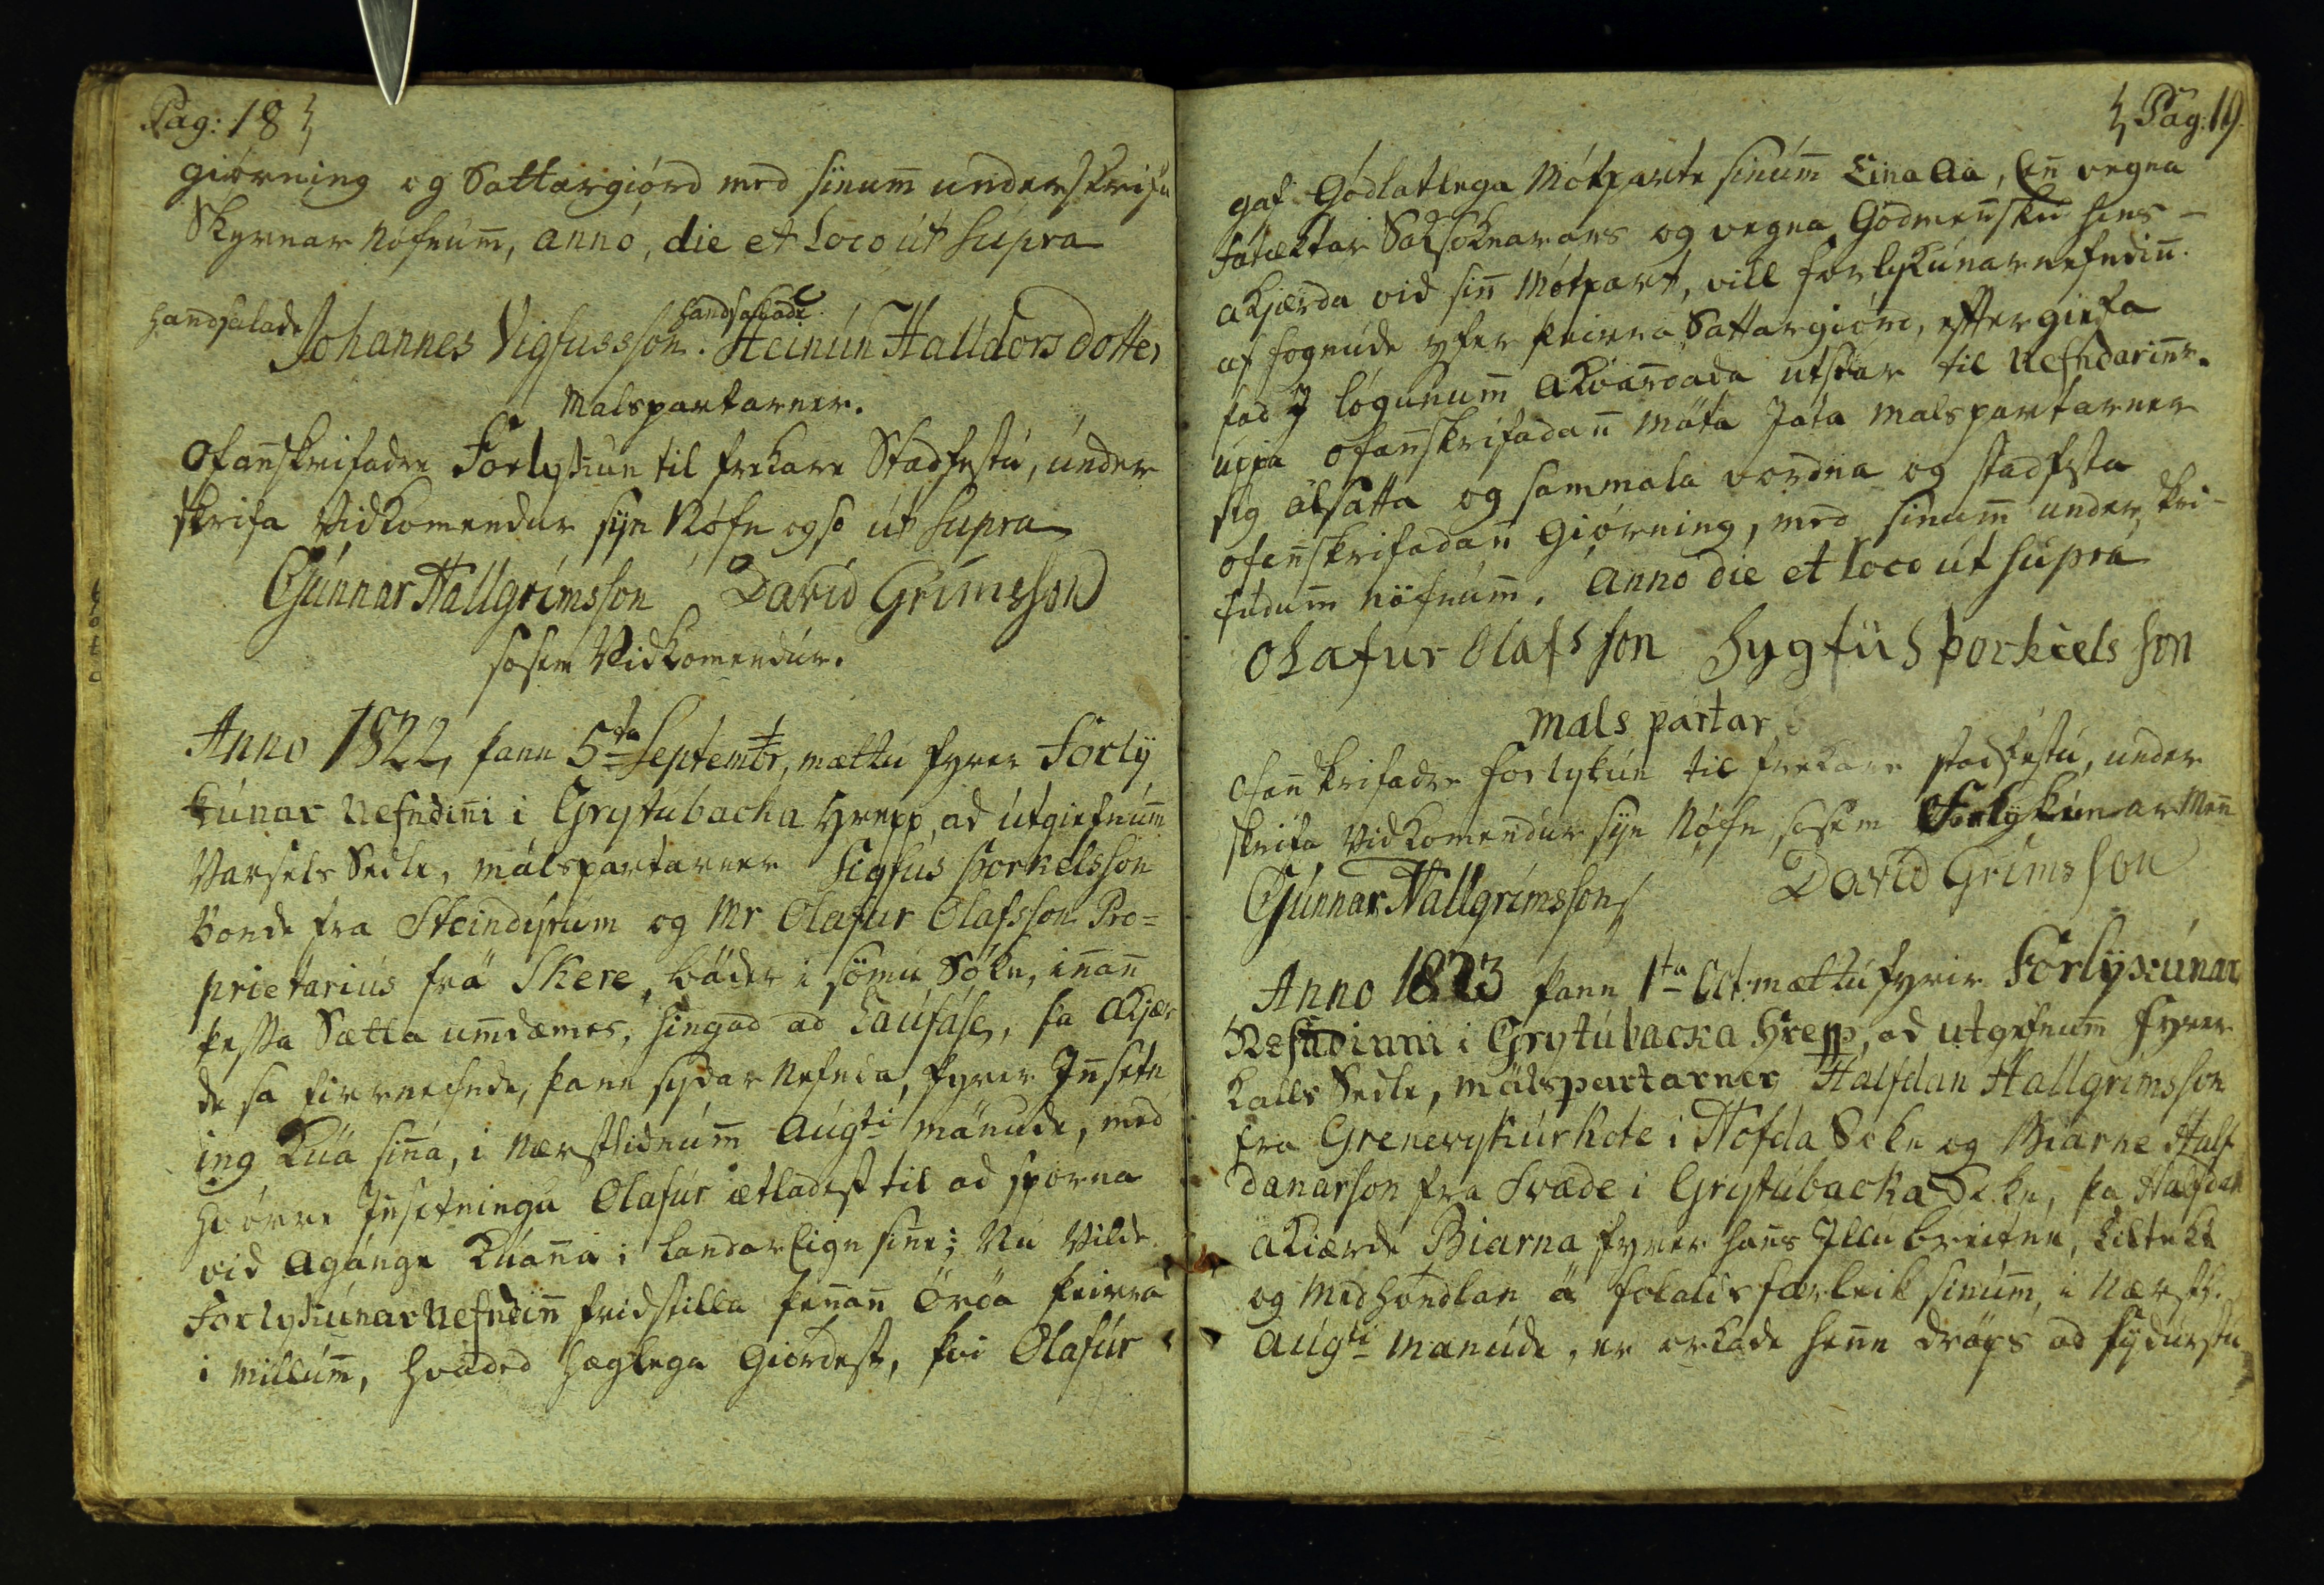 Pag: 18
giörning og Sattargiörd med sinum̄ underskrifu
Skyrnar Nöfnum̄, anno, die et Loco út supra
handsalade Johannes Vigfusson. handsalade Steinún Halldorsdotter
Malspartarner.
Ofan̄skrifadre Forlykun til frekare Stadfestu, under
skrifa Vidkomendur sijn Nöfn ogso út supra
Gúnnar Hallgrímsson David Grímsson
sosem Vidkomendúr.
Anno 1822, þann 5ta Septembr, mættu fyrer Forlÿ
kúnar Nefndin̄i i Grytubacka Hrepp, ad útgiefnúm̄
Varsels Sedle, málspartarner Sigfús Þorkelsson
Bonde fra Steindyrum og Mr Olafur Olafsson Pro=
prietarius frá Skere, báder i sömu Sókn, in̄an̄
þessa Sætta um̄dæmes, hingad ad Laúfáse, þa Akjær
de sa firrnefnde, þann sydar Nefnda, fyrer In̄setn
ing Kúa sin̄a, i Nærstlidnúm̄ Augti mánude, med
hvörre In̄setningu Olafúr ætladest til ad sporna
vid Agánge Kúan̄a i landareign sine; Nu Vilde
Forlykúnar Nefndin̄ fridstilla þen̄an̄ Óróa þeirra
i millúm̄, hvaded Hæglega Giördest, þvi Olafúr
Pag: 19.
gaf Godlatlega Mótparte sinúm̄ Eina Aa, En̄ vegna
fatæktar Saksoknarans og vegna Godmen̄sku hans
Akjærda vid sin̄ Mótpart, vill forlykúnarnefndin̄
af fognude yfer þeirra Sattargiörd, effter giefa
þad J lögunum̄ Akvardada útsvar til Nefndarin̄r.
uppa ofan̄skrifadan̄ Máta Játa Malspartarner
sig alsatta og sammala vordna og stadfesta
ofan̄skrifadan̄ Giörning, med sinum̄ underskri-
fudum̄ nöfnúm̄. Anno die et loco út supra
Olafur Olafs son Sygfús Þorkiels son
mals partar
ofan̄skrifadre forlykún til frekare stadfestu, under
skrifa Vidkomendur sijn Nöfn, sosem Forlykúnar Men̄
Gúnnar Hallgrímsson David Grímsson
Anno 1823 þann 1ta Oct. mættú fyrir Forlýkúnar
Nefndinni i Grytúbacka Hrepp, ad utgefnum̄ fyrer
kalls Sedle, málspartarner Halfdan Hallgrímsson
fra Grenevykúrkote i Höfda Sokn og Biarne Half
danarson fra Svæde i Grytúbacka Sokn, þa Halfdan
akiærde Biarna fyrer han̄s Illu breitne, tiltekt
og Medhöndlan á folalds færleik sinúm̄, i Nærstl.
Augti mánúde, er orkade hen̄e dráps ad sydurstu